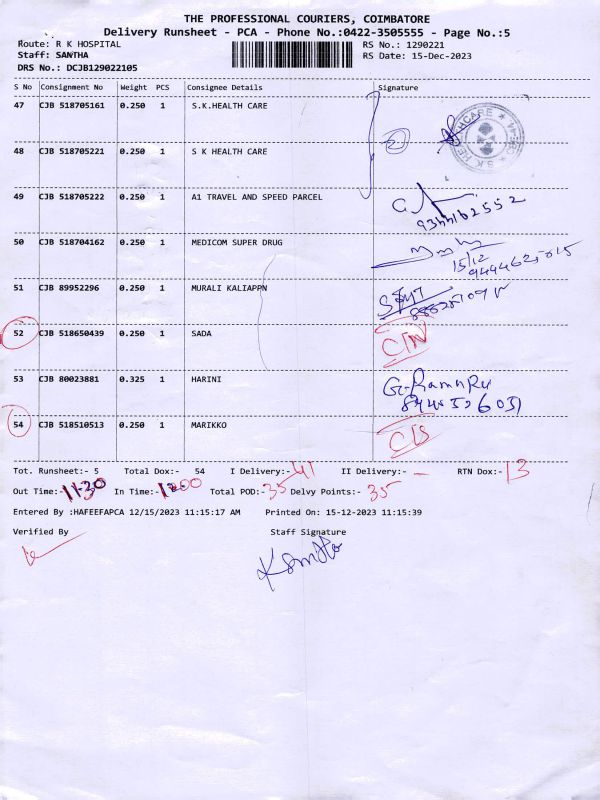 THE PROFESSIONAL COURIERS, COIMBATORE
Delivery Runsheet - PCA - Phone No.:0422-3505555 - Page No.:5
Route: R K HOSPITAL RS No.: 1290221
Staff: SANTHA RS Date: 15-Dec-2023
DRS No.: DCJB129022105
S No Consignment No Weight PCS Consignee Details Signature
47 CJB 518705161 0.250 1 S.K.HEALTH CARE
48 CJB 518705221 0.250 1 S K HEALTH CARE
49 CJB 518705222 0.250 1 A1 TRAVEL AND SPEED PARCEL
50 CJB 518704162 0.250 1 MEDICOM SUPER DRUG
15/12
51 CJB 89952296 0.250 1 MURALI KALIAPPN
52 CJB 518650439 0.250 1 SADA
53 CJB 80023881 0.325 1 HARINI
54 CJB 518510513 0.250 1 MARIKKO
Tot. Runsheet:- 5 Total Dox:- 54 I Delivery:- 41 II Delivery:- — RTN Dox:- 13
Out Time:- 11.30 In Time:- Total POD:- 35 Delvy Points:- 35
Entered By :HAFEEFAPCA 12/15/2023 11:15:17 AM Printed On: 15-12-2023 11:15:39
Verified By Staff Signature